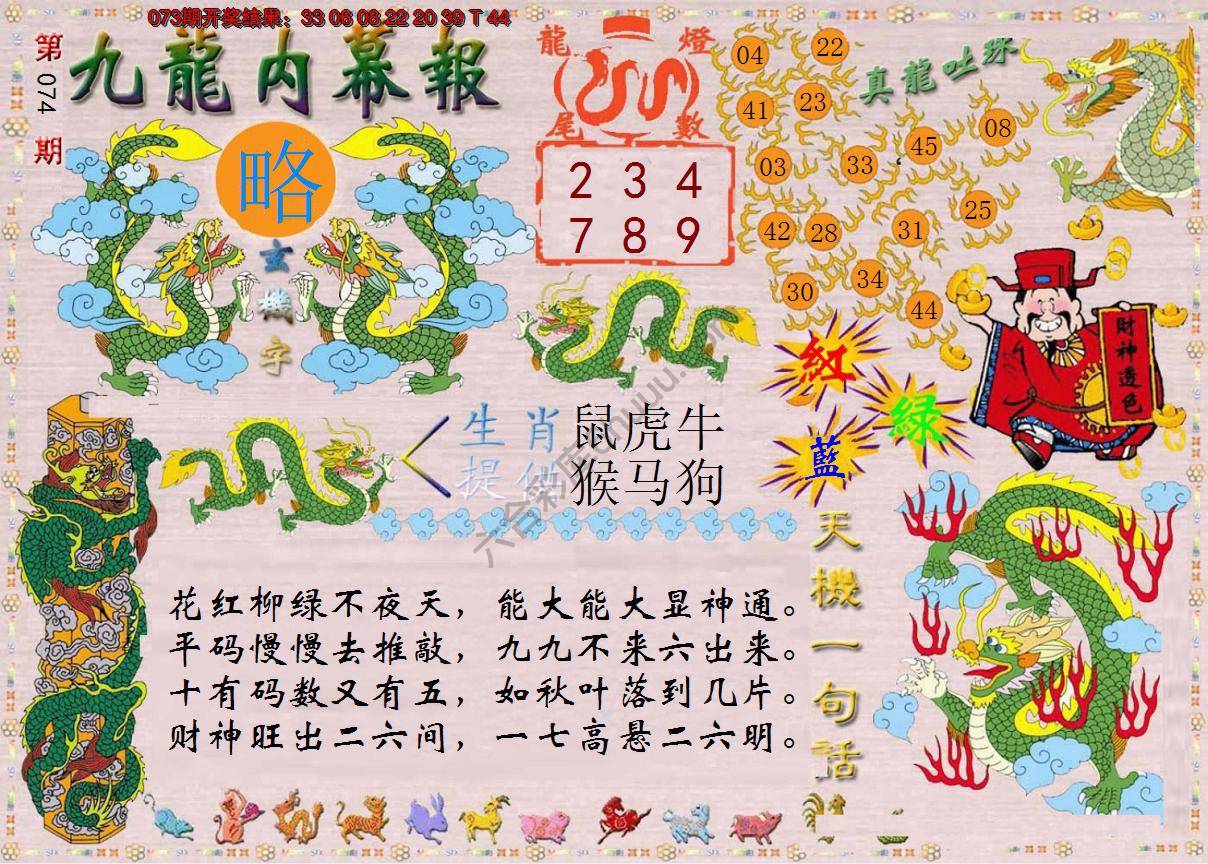 073期开奖结果：33 06 08 22 20 39 T 44
第074期
九龍内幕報
略
玄機字
龍燈
尾數
2 3 4
7 8 9
真龍吐珠
04 22
41 23
03 33 45 08
42 28 31 25
30 34 44
財神透色
紅
绿
藍
生肖 鼠虎牛
提供 猴马狗
天機一句話
花红柳绿不夜天，能大能大显神通。
平码慢慢去推敲，九九不来六出来。
十有码数又有五，如秋叶落到几片。
财神旺出二六间，一七高悬二六明。